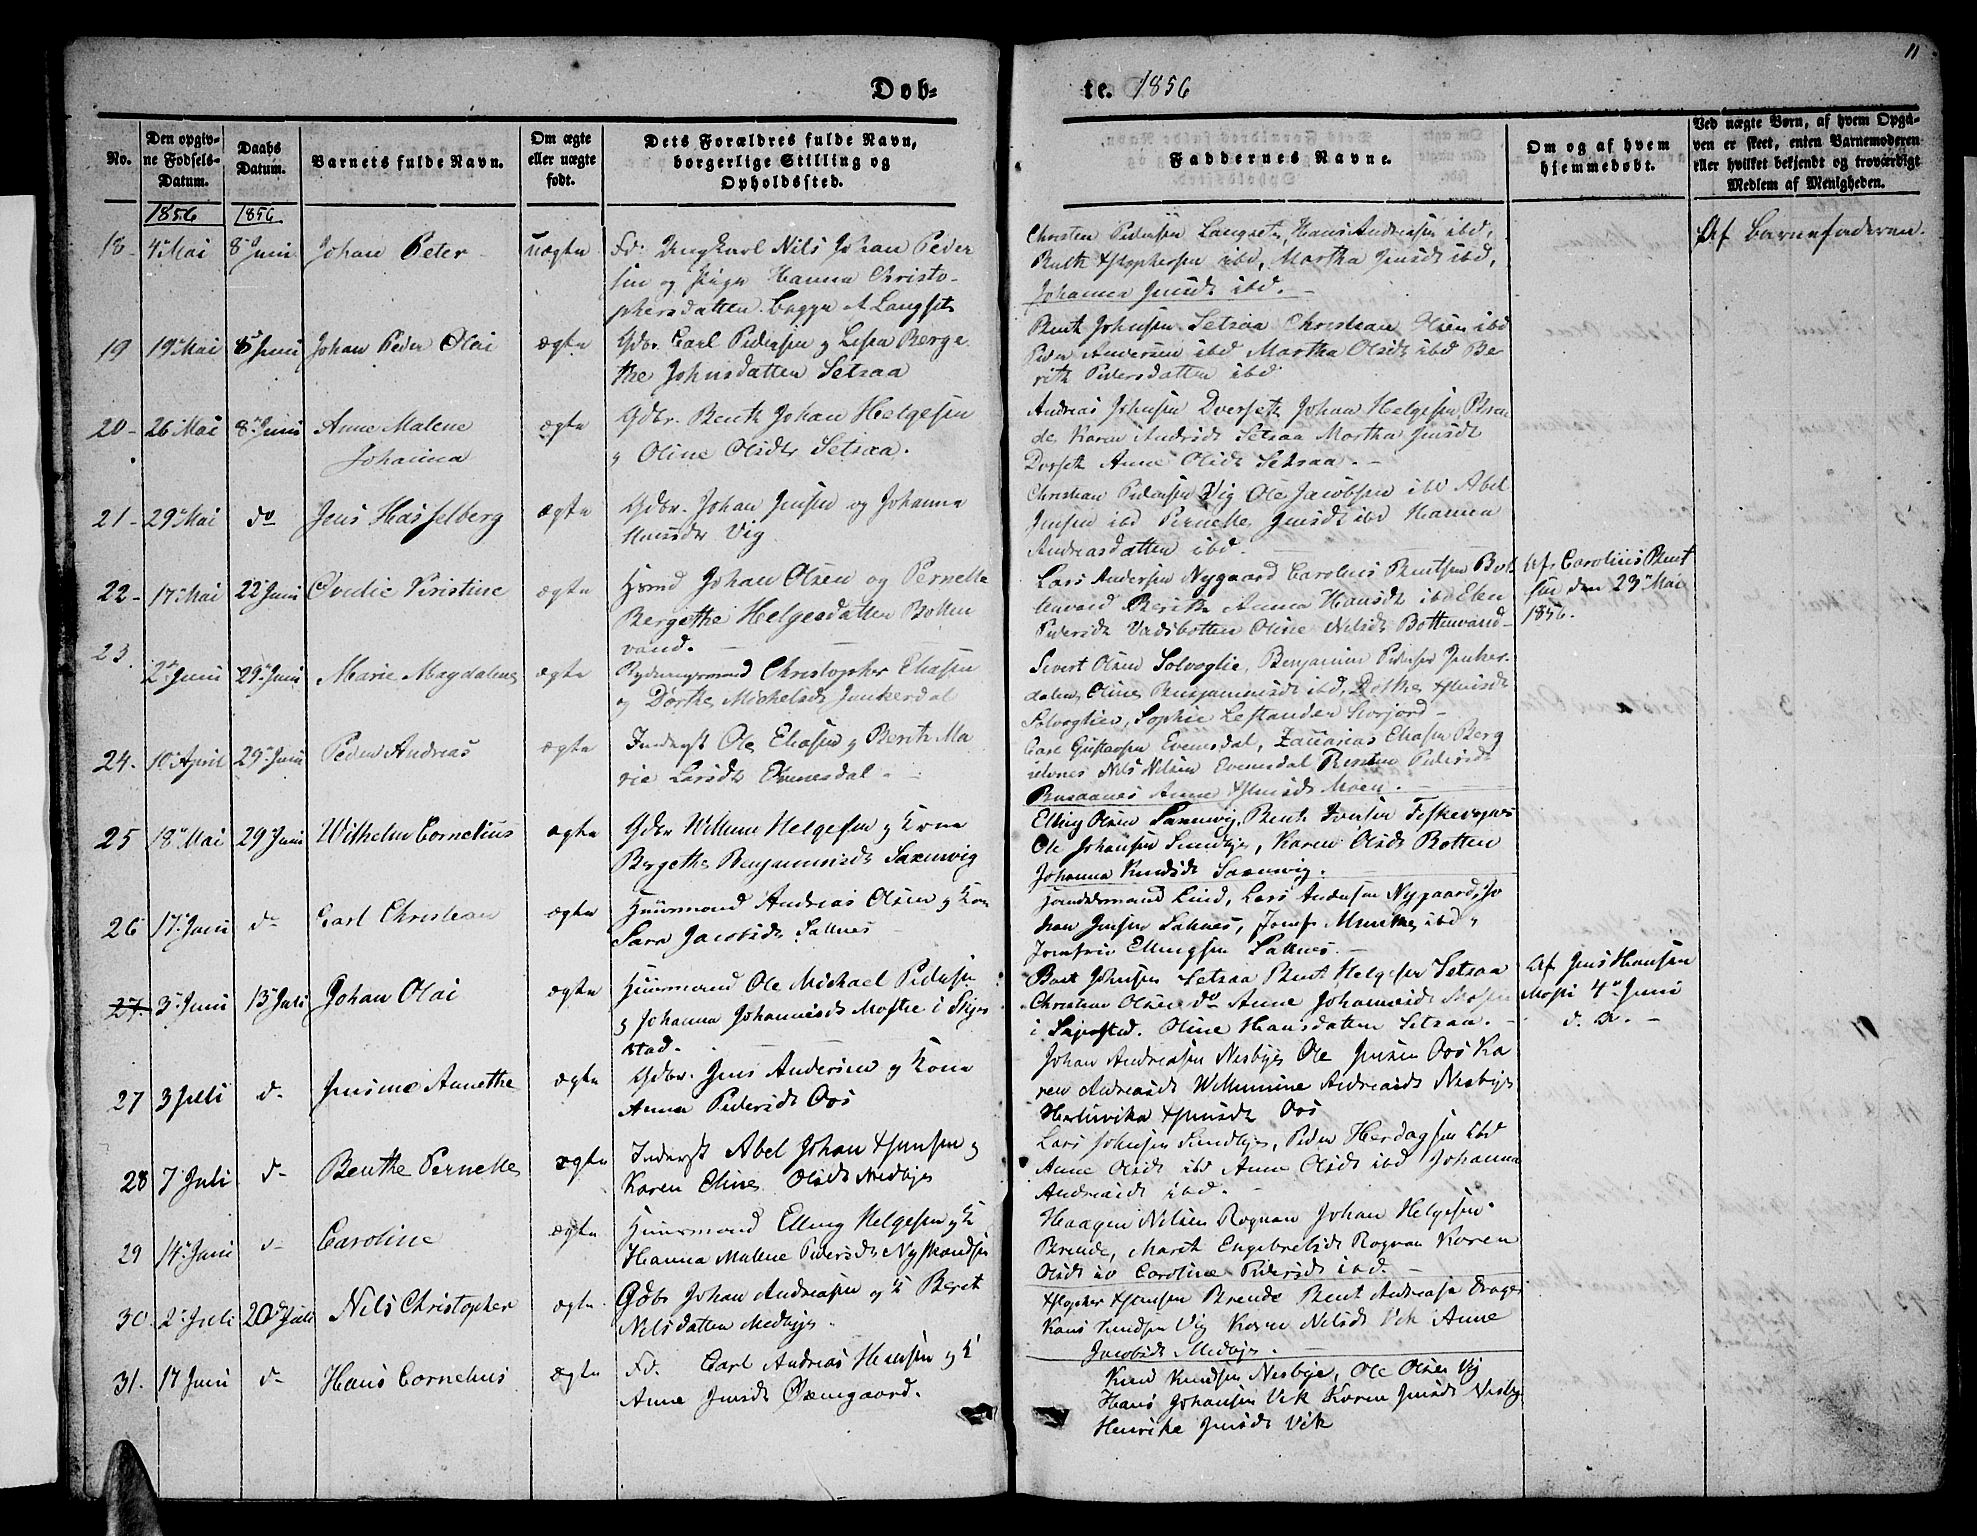 11
Døb-
te. 1856
No.
Den opgiv-
ne Fødsels-
Datum.
Daabs
Datum.
Barnets fulde Navn.
Om ægte
eller uægte
født.
Dets Forældres fulde Navn,
borgerlige Stilling og
Opholdssted.
Faddernes Navne.
Om og af hvem
hjemmedøbt.
Ved uægte Børn, af hvem Opgi-
ven er skeet, enten Barnemoderen
eller hvilket bekjendt og troværdigt
Medlem af Menigheden.
1856
1856
18- 4de Mai 8de Juni Johan Peter uægte
Fd. Ungkarl Nils Johan Peder
sen og Pige Hanna Christo-
phersdatter begge Langset
Christen Pedersen Langset, Hans Andreasen ibd,
Martha Jensdt ibd,
Johanna Jensdt ibd.
Af Barnefaderen.
19 19de Mai 8de Juni Johan Peder Olai ægte
Gdbr. Carl Pedersen og Berge
the Johnsdatter Setsaa
Bent Johnsen Setsaa Christian Olsen ibd
Peder Andersen ibd Martha Olsdt ibd Be
rith Pedersdatter ibd
20- 26 Mai 8de Juni Anne Malene
Johanna
ægte
Gdbr. Benth Johan Helgesen
og Oline Olsdtr Setsaa.
Andreas Johnsen Dverseth Johan Helgesen Bren
de, Karen Andrsdt Setsaa Martha Jensdt
Anne Olsdt Setsaa.
21- 29de Mai do Jens Hasselberg ægte
Gdbr. Johan Jensen og Johanna
Hansdtr Vig
Christian Pedersen Vig Ole Jacobsen ibd Abel
Jensen ibd Pernelle Jensdt ibd Hanna
Andreasdatter ibd.
22- 17de Mai 22de Juni Ovedie Kristine ægte
Johan Olsen og Pernelle
Bergethe Helgesdatter Botten
vand.
Lars Andersen Nygaard Carolius Bentsen Bot
tenvand Anna Hansdt ibd Elen
Pedersdt Vadsbotten Oline Nilsdt Bottenvand
Af Carolius Bent
sen den 23de Mai
1856.
23. 2de Juni 29de Juni Marie Magdalena ægte
Rydningsmand Christopher Eliasen
og Dorthe Michelsdt Junkerdal
Sivert Olsen Solvaglie, Benjamin Pedersen Junker-
dalen, Oline Benjaminsdt ibd, Dorthe
Solvaglien, Sophie Lestander Storjord
24. 10de April 29de Juni Peder Andreas ægte
Inderst Ole Eliasen og Berith Ma
rie Larsdt Evenesdal.
Carl Gustavsen Evenesdal, Zacharias Eliasen Berg
ulvnes Nils Nilsen Evenesdal Pedersdt
Anne Moen.
25 18de Mai 29 Juni Wilhelm Cornelius ægte
Gdbr Willum Helgesen og Kone
Bergethe Benjaminsdt Saxenvig
Elling Olsen Saxenvig, Bent Jensen Fiskevognes
Ole Johansen Sundby, Karen Olsdt Botten
Johanna Knudsdt Saxenvig.
26 17de Juni do Carl Christian ægte
Huusmand Andreas Olsen og Kone
Sara Jacobsdt Saltnes
Handelsmand Lund, Lars Andersen Nygaard, Jo
han Jensen Saltnes, Jomf. ibd,
Ellingsen Saltnes.
27. 3de Juni 13de Juli Johan Olai ægte
Huusmand Ole Michael Pedersen
og Johanna Johannesdt i Skjer
stad.
Bent Johnsen Setsaa Bent Helgesen Setsaa
Christian Olsen do Anne Johannesdt
i Oline Hansdatter Setsaa.
Af Jens Hansen
Mosti 4de Juni
d. A.
27 3 Juli do Jensine Annethe ægte
Gdbr. Jens Andersen og Kone
Anna Pedersdt Oos
Johan Andreasen Nesbye Ole Jensen Oos Ka
ren Andreasdt Willumine Andreasdt Nesbye
Oos
28 7 Juli do Benthe Pernelle ægte
Inderst Abel Johan og
Karen Oline Olsdt Medbye
Lars Johnsen Sundbye, Peder Herdagsen ibd
Anne Olsdt ibd Anne Olsdt ibd Johanna
Andreasdt ibd.
29 14de Juni do Caroline ægte
Huusmand Elling Helgesen og K
Hanna Malene Pedersdt
Haagen Nilsen Rognan Johan Helgesen
Brende, Marit Engebretsdt Rognan Karen
Olsdt ibd Caroline Pedersdt ibd.
30. 2de Juli 20de Juli Nils Christopher ægte.
Gdbr Johan Andreasen og K Berit
Nilsdatter Medbye.
Brende Bent Andreasen Drage
Hans Knudsen Vig Karen Nilsdt Vik Anne
Jacobsdt Medbye.
31. 17 Juni do Hans Cornelius ægte
Fd. Carl Andreas Hansen og K
Anne Jensdt Øxengaard.
Knud Knudsen Nesbye, Ole Olsen Vig
Hans Johansen Vik Karen Jensdt Nesby
Henrike Jensdt Vik